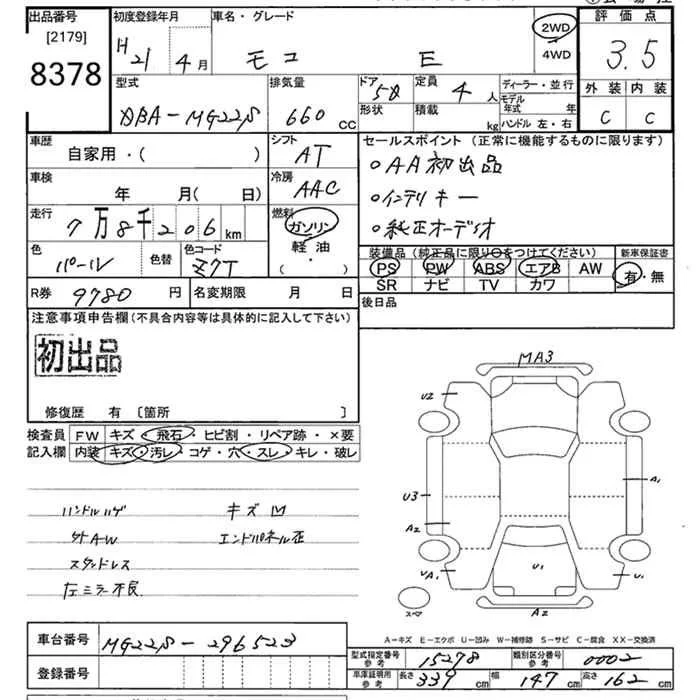 出品番号 初度登録年月 車名・グレード 2WD 評価点
[2179] H21 4月 モコ E 4WD 3.5
8378
型式 排気量 ドア 5D 定員 4人 ディーラー・並行 外装 内装
DBA-MG22S 660cc 形状 積載 kg モデル年式 年 C C
ハンドル 左・右
車歴 シフト セールスポイント(正常に機能するものに限ります)
自家用・( ) AT ○AA初出品
車検 冷房
年 月( 日) AAC ○インテリキー
走行 燃料
7万8千206km ガソリン ○純正オーディオ
色 色替 色コード 軽油 装備品(純正品に限り○をつけてください) 新車保証書
パール Z7T ( ・ ) PS PW ABS エアB AW 有・無
SR ナビ TV カワ
R券 9780円 名変期限 月 日 後日品
注意事項申告欄(不具合内容等は具体的に記入して下さい)
初出品
修復歴 有 [箇所 ]
検査員 FW キズ・飛石・ヒビ割・リペア跡・×要
記入欄 内装 キズ・汚レ・コゲ・穴・スレ・キレ・破レ
MA3
U2
A1
U3
A2
UA1
U1
U1
スペア
A2
ハンドルハゲ キズ凹
サトAW エンドパネル歪
スタッドレス
左ミラー不良
A-キズ E-エクボ U-凹み W-補修跡 S-サビ C-腐食 XX-交換済
車台番号 MG22S-296523
型式指定番号 参考 15278 類別区分番号 参考 0002
登録番号
車庫証明用 参考 長さ 339cm 幅 147cm 高さ 162cm